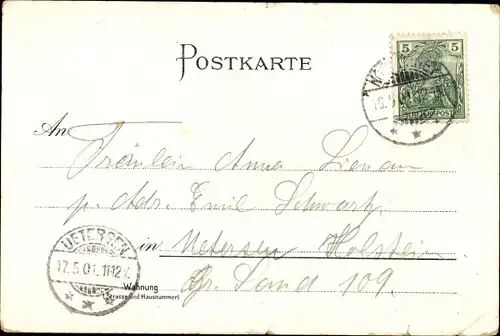 POSTKARTE
5 5
REICHSPOST
An
Fräulein Anna Lienau
p. Adr. Emil Schwartz
in Uetersen Holstein
Gr. Sand 109.
Wohnung
(Strasse und Hausnummer)
UETERSEN
17.5.01. 11-12V.